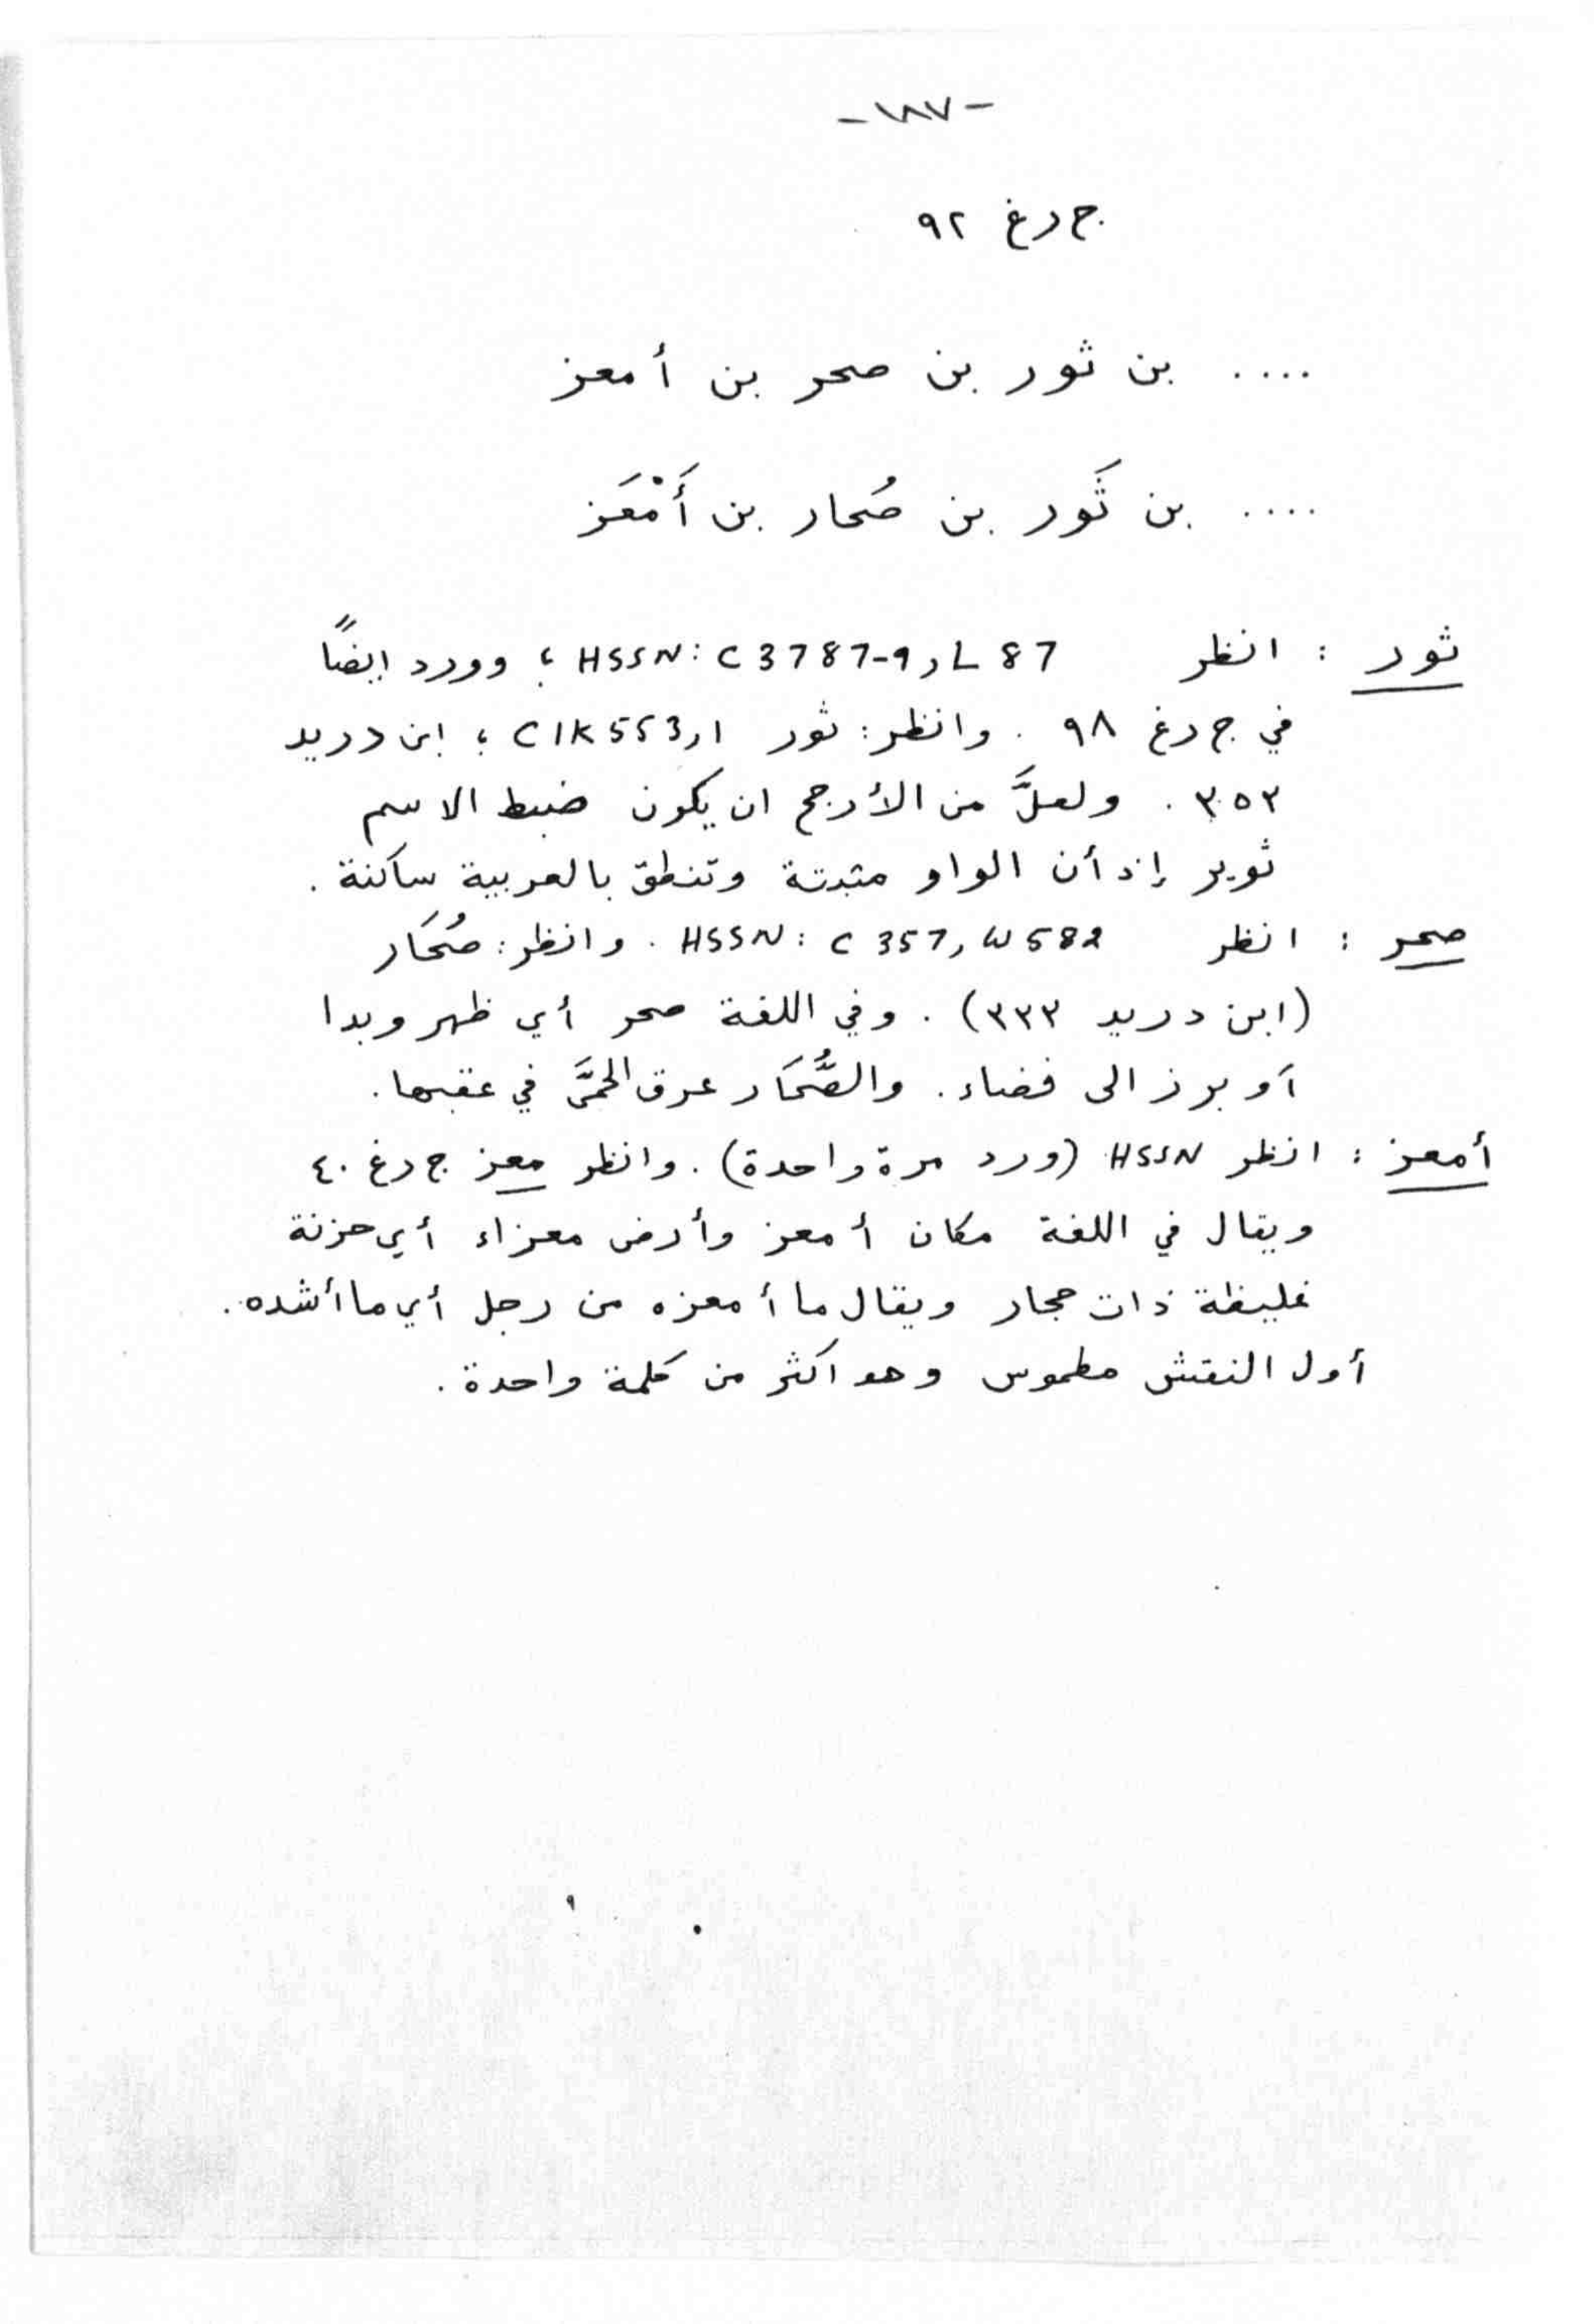 -١٨٧-
ج رغ ٩٢
.... بن ثور بن صحر بن أمعز
.... بن ثَور بن صُحار بن أَمْعَز
ثور : انظر HSSN: C 3787-9, L 87 ؛ وورد ايضًا
في ج رغ ٩٨ . وانظر: ثور CIK 553,1 ؛ ابن دريد
٣٥٣ . ولعلَّ من الأرجح ان يكون ضبط الاسم
ثوير إذ أن الواو مثبتة وتنطق بالعربية ساكنة .
صحر : انظر HSSN: C 357, W 582 . وانظر: صُحَار
(ابن دريد ٣٣٣) . وفي اللغة صحر أي ظهر وبدا
أو برز الى فضاء . والصُّحَار عرق الحمَّى في عقبها .
أمعز : انظر HSSN (ورد مرة واحدة) . وانظر معز ج رغ ٤٠
ويقال في اللغة مكان أمعز وأرض معزاء أي حزنة
غليظة ذات حجار ويقال ما أمعزه من رجل أي ما أشده .
أول النقش مطموس وهو اكثر من كلمة واحدة .